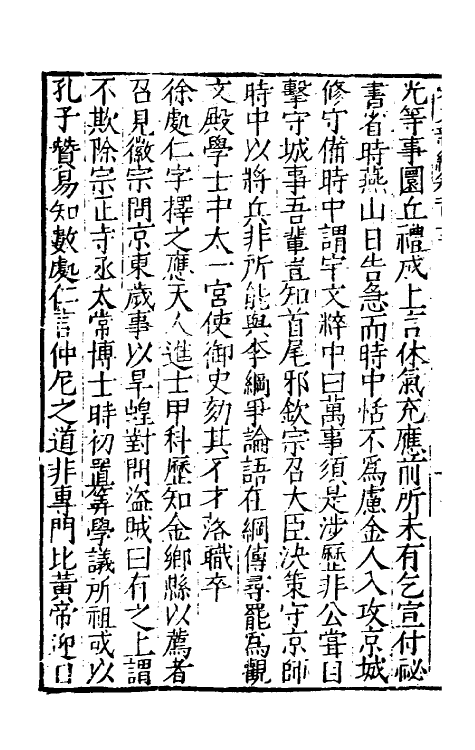 光等事圜丘禮成上言休氣充應前所未有乞宣付祕
書省時燕山日告急而時中恬不為慮金人入攻京城
修守備時中謂宇文粹中曰萬事須是涉歷非公嘗目
擊守城事吾輩豈知首尾邪欽宗召大臣決策守京師
時中以將兵非所能與李綱爭論語在綱傳尋罷為觀
文殿學士中太一宮使御史劾其不才落職卒
徐處仁字擇之應天人進士甲科歷知金鄉縣以薦者
召見徽宗問京東歲事以旱蝗對問盜賊曰有之上謂
不欺除宗正寺丞太常博士時初置筭學議所祖或以
孔子贊易知數處仁言仲尼之道非專門比黃帝迎日